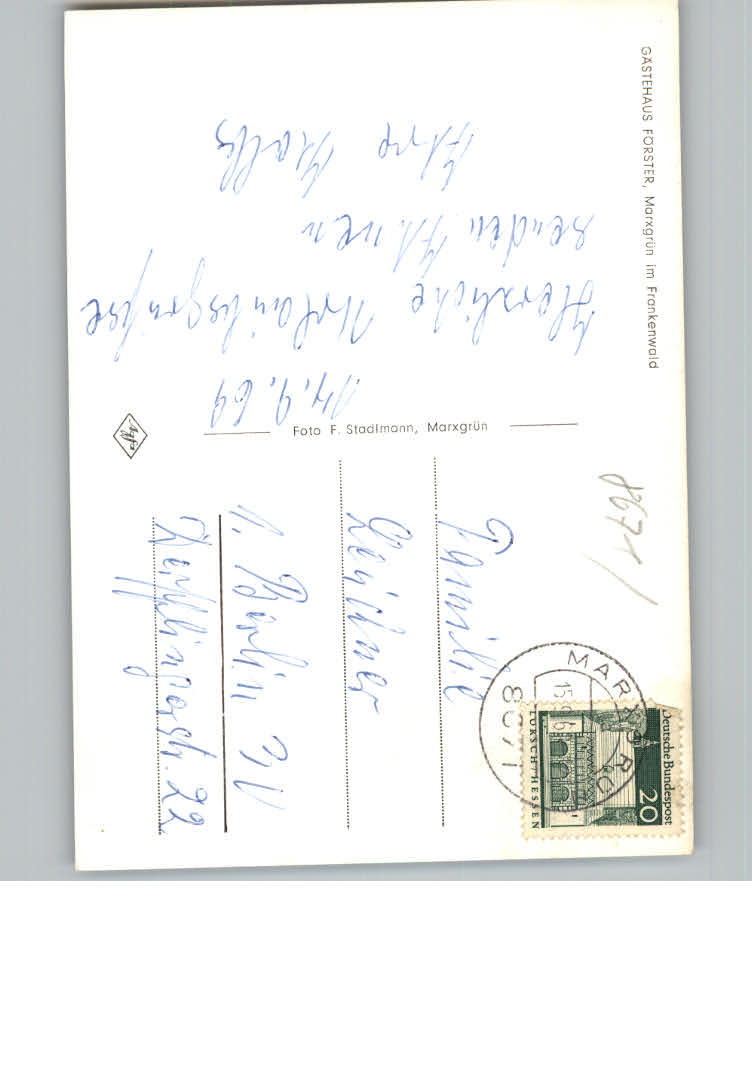 GÄSTEHAUS FÖRSTER, Marxgrün im Frankenwald
14.9.69
Herzliche Urlaubsgrüsse
senden Ihnen
Ihre
Foto F. Stadlmann, Marxgrün
Agfa
8671
Familie
Leuchner
1. Berlin
22
MARXGRÜN
15.9.6
8671
Deutsche Bundespost
20
LORSCH/HESSEN